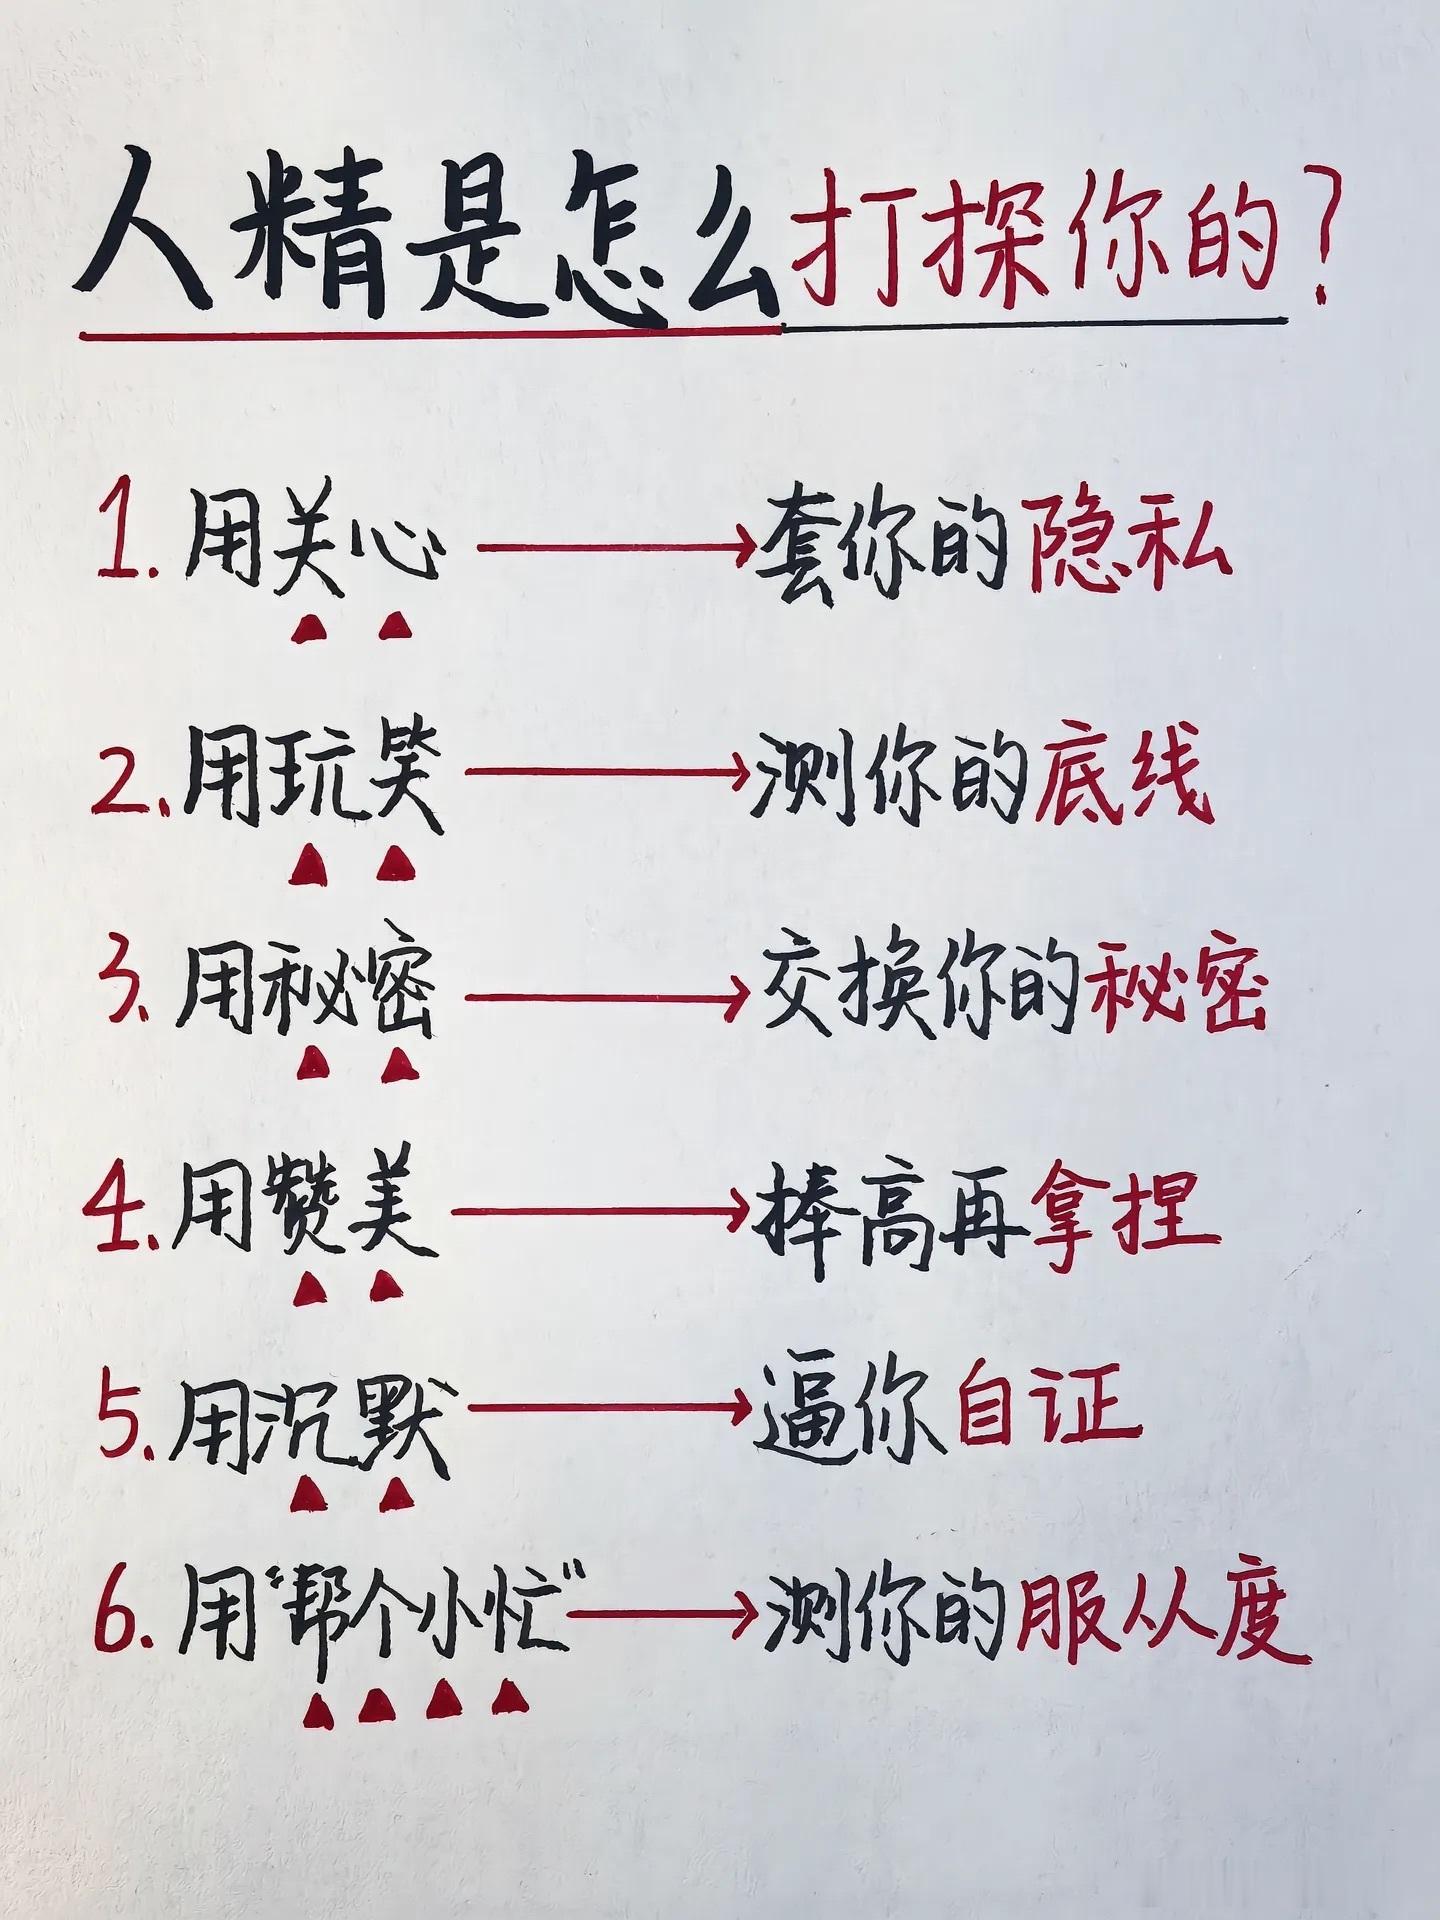 人精是怎么打探你的?
1. 用关心 → 套你的隐私
2. 用玩笑 → 测你的底线
3. 用秘密 → 交换你的秘密
4. 用赞美 → 捧高再拿捏
5. 用沉默 → 逼你自证
6. 用“帮个小忙” → 测你的服从度